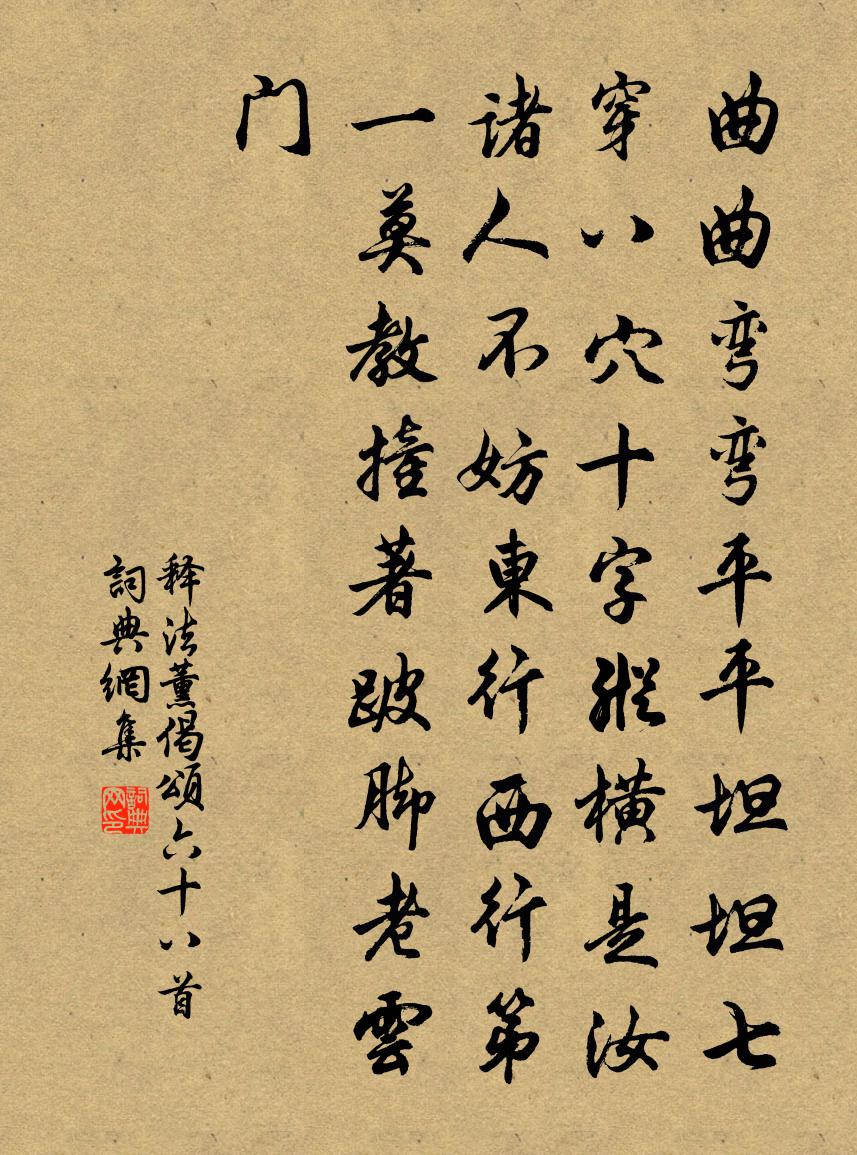 曲曲弯弯平平坦坦七
穿八穴十字縱橫是汝
诸人不妨東行西行第
一莫教撞著跛脚老雲
门
释法薰偈頌六十八首
詞典網集
詞典网印